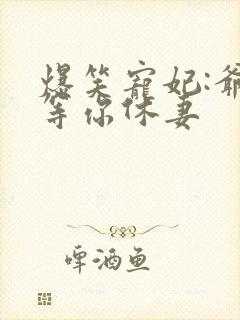 爆笑宠妃:爷
等你休妻
啤酒鱼